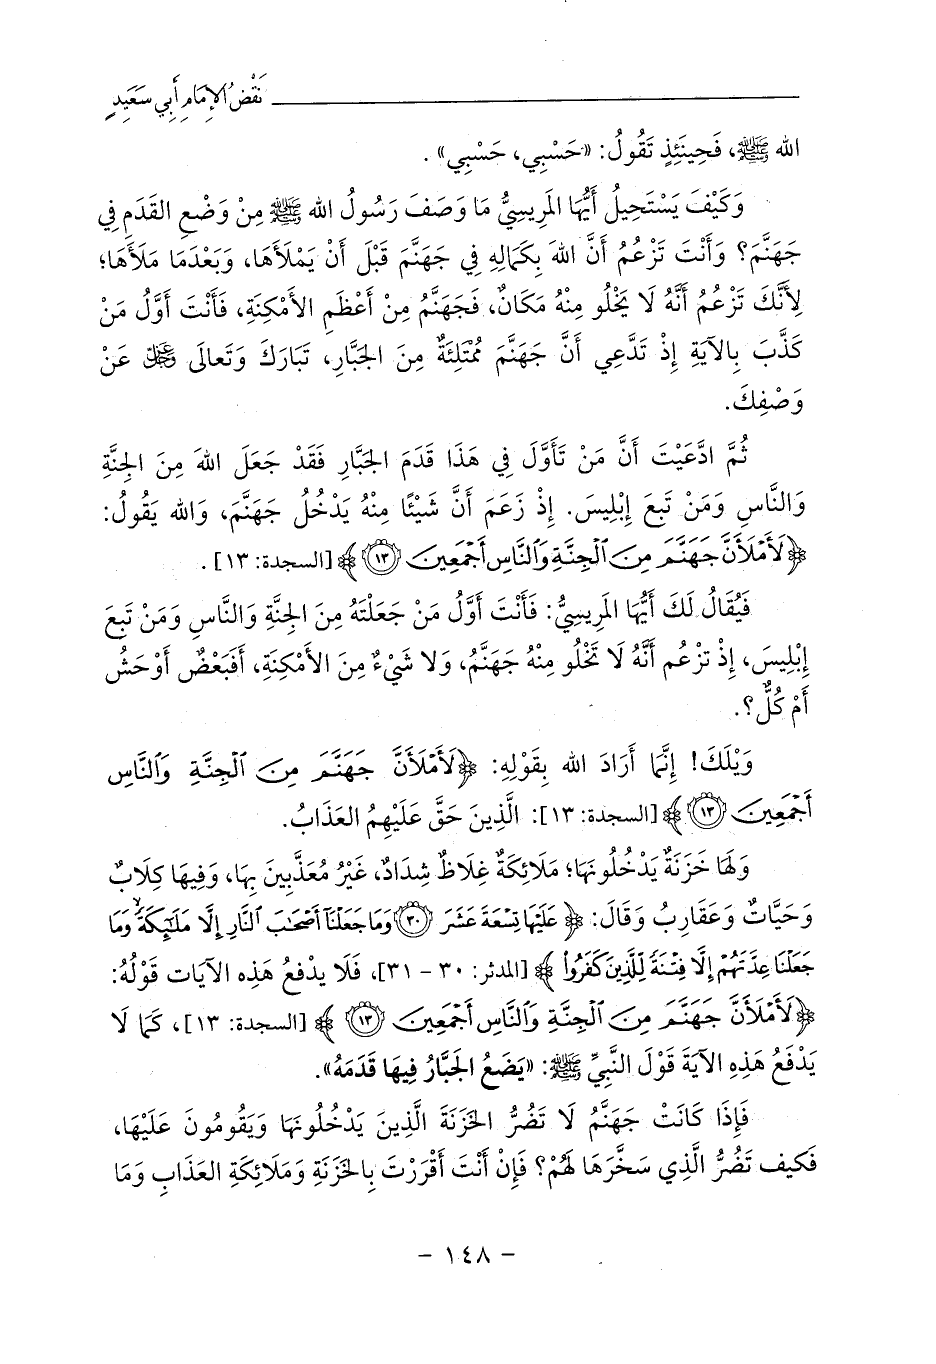 نَقْضُ الإِمَامِ أَبِي سَعِيدٍ
الله ﷺ، فَحِينَئِذٍ تَقُولُ: «حَسْبِي، حَسْبِي» .
وَكَيْفَ يَسْتَحِيلُ أَيُّهَا المَرِيسِيُّ مَا وَصَفَ رَسُولُ الله ﷺ مِنْ وَضْعِ القَدَمِ فِي
جَهَنَّمَ؟ وَأَنْتَ تَزْعُمُ أَنَّ اللهَ بِكَمَالِهِ فِي جَهَنَّمَ قَبْلَ أَنْ يَمْلَأَهَا، وَبَعْدَمَا مَلَأَهَا؛
لِأَنَّكَ تَزْعُمُ أَنَّهُ لَا يَخْلُو مِنْهُ مَكَانٌ، فَجَهَنَّمُ مِنْ أَعْظَمِ الأَمْكِنَةِ، فَأَنْتَ أَوَّلُ مَنْ
كَذَّبَ بِالآيَةِ إِذْ تَدَّعِي أَنَّ جَهَنَّمَ مُمْتَلِئَةٌ مِنَ الجَبَّارِ، تَبَارَكَ وَتَعَالَى ﷻ عَنْ
وَصْفِكَ.
ثُمَّ ادَّعَيْتَ أَنَّ مَنْ تَأَوَّلَ فِي هَذَا قَدَمَ الجَبَّارِ فَقَدْ جَعَلَ اللهَ مِنَ الجِنَّةِ
وَالنَّاسِ وَمَنْ تَبِعَ إِبْلِيسَ. إِذْ زَعَمَ أَنَّ شَيْئًا مِنْهُ يَدْخُلُ جَهَنَّمَ، وَالله يَقُولُ:
﴿لَأَمْلَأَنَّ جَهَنَّمَ مِنَ ٱلْجِنَّةِ وَٱلنَّاسِ أَجْمَعِينَ ۝١٣﴾ [السجدة: ١٣] .
فَيُقَالُ لَكَ أَيُّهَا المَرِيسِيُّ: فَأَنْتَ أَوَّلُ مَنْ جَعَلْتَهُ مِنَ الجِنَّةِ وَالنَّاسِ وَمَنْ تَبِعَ
إِبْلِيسَ، إِذْ تزْعُم أَنَّهُ لَا تَخْلُو مِنْهُ جَهَنَّمُ، وَلا شَيْءٌ مِنَ الأَمْكِنَةِ، أَفَبَعْضٌ أَوْحَشُ
أَمْ كُلٌّ؟.
وَيْلَكَ! إِنَّمَا أَرَادَ الله بِقَوْلِهِ: ﴿لَأَمْلَأَنَّ جَهَنَّمَ مِنَ ٱلْجِنَّةِ وَٱلنَّاسِ
أَجْمَعِينَ ۝١٣﴾ [السجدة: ١٣]: الَّذِينَ حَقَّ عَلَيْهِمُ العَذَابُ.
وَلَهَا خَزَنَةٌ يَدْخُلُونَهَا؛ مَلَائِكَةٌ غِلَاظٌ شِدَادٌ، غَيْرُ مُعَذَّبِينَ بِهَا، وَفِيهَا كِلَابٌ
وَحَيَّاتٌ وَعَقَارِبُ وَقَالَ: ﴿عَلَيْهَا تِسْعَةَ عَشَرَ ۝٣٠ وَمَا جَعَلْنَآ أَصْحَٰبَ ٱلنَّارِ إِلَّا مَلَٰٓئِكَةً ۙ وَمَا
جَعَلْنَا عِدَّتَهُمْ إِلَّا فِتْنَةً لِّلَّذِينَ كَفَرُوا۟﴾ [المدثر: ٣٠ - ٣١]، فَلَا يدْفعُ هَذِهِ الآيَات قَوْلُهُ:
﴿لَأَمْلَأَنَّ جَهَنَّمَ مِنَ ٱلْجِنَّةِ وَٱلنَّاسِ أَجْمَعِينَ ۝١٣﴾ [السجدة: ١٣]، كَمَا لَا
يَدْفَعُ هَذِهِ الآيَةَ قَوْلَ النَّبِيِّ ﷺ: «يَضَعُ الجَبَّارُ فِيهَا قَدَمَهُ».
فَإِذَا كَانَتْ جَهَنَّمُ لَا تَضُرُّ الخَزَنَةَ الَّذِينَ يَدْخُلُونَهَا وَيَقُومُونَ عَلَيْهَا،
فَكَيف تَضُرُّ الَّذِي سَخَّرَهَا لَهُمْ؟ فَإِنْ أَنْتَ أَقْرَرْتَ بِالخَزَنَةِ وَمَلَائِكَةِ العَذَابِ وَمَا
- ١٤٨ -